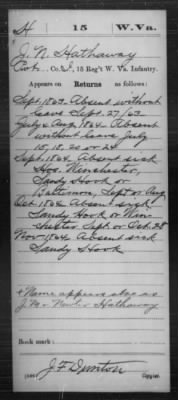 H 15 W. Va.
J. N. Hathaway
Pvt., Co. I, 15 Reg't W. Va. Infantry.
Appears on Returns as follows:
Sept. 1863. Absent without
leave Sept. 27/63
July & Aug. 1864. Absent
without leave July
15, 18, 20 or 24
Sept. 1864. Absent sick
Hos. Winchester,
Sandy Hook or
Baltimore, Sept. or Aug
Oct. 1864 Absent sick
Sandy Hook or Win-
chester Sept. or Oct. 28
Nov. 1864 Absent sick
Sandy Hook
* Name appears also as
J. M. Hathaway
Book mark:
J F Dunton
Copyist.